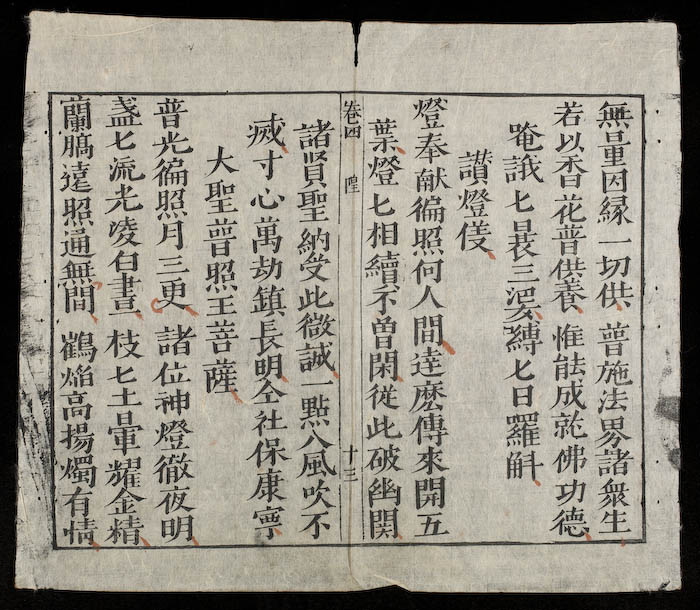 無量因緣一切供普施法界諸衆生
若以香花普供養惟能成就佛功德
唵誐七曩三婆縛七日羅斛
讃燈偈
燈奉献徧照何人間達麽傳來開五
葉燈七相續不曽閑従此破幽関
卷四 十三
諸賢聖納受此微誠一點八風吹不
滅寸心萬劫鎮長明仝社保康寧
大聖普照王菩薩
普光徧照月三更諸位神燈徹夜明
盞七流光凌白晝一枝七土暈耀金精
蘭膏遠照通無間鶴焰高揚燭有情